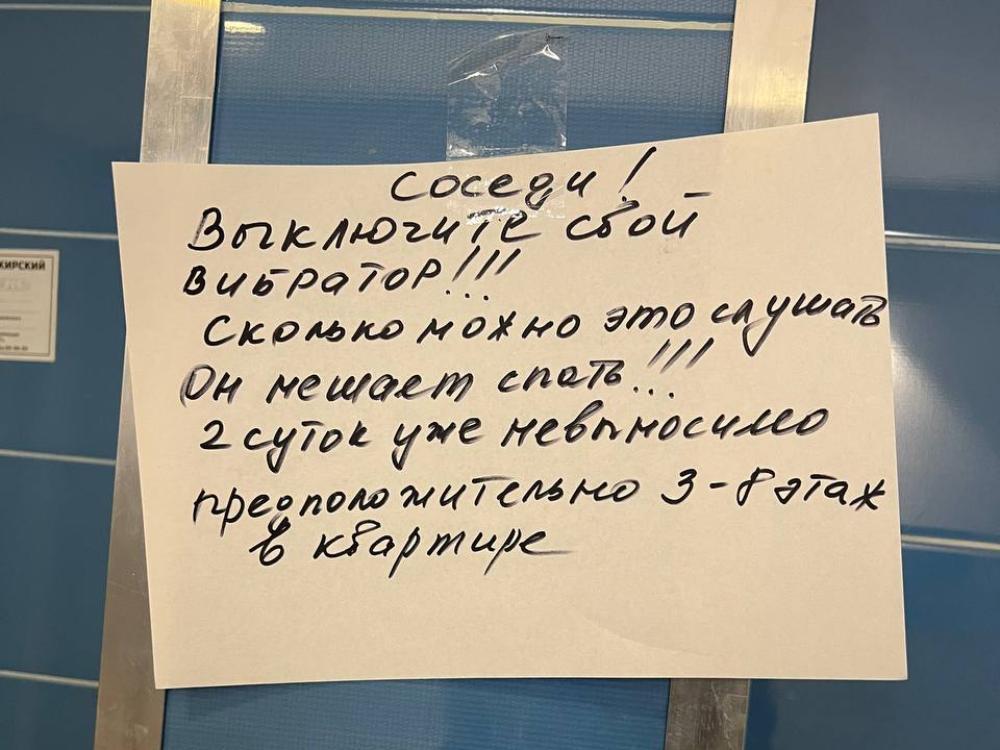 Соседи!
Выключите свой
вибратор!!!
Сколько можно это слушать
Он мешает спать!!!
2 суток уже невыносимо
предположительно 3-8 этаж
в квартире
КИРСКИЙ